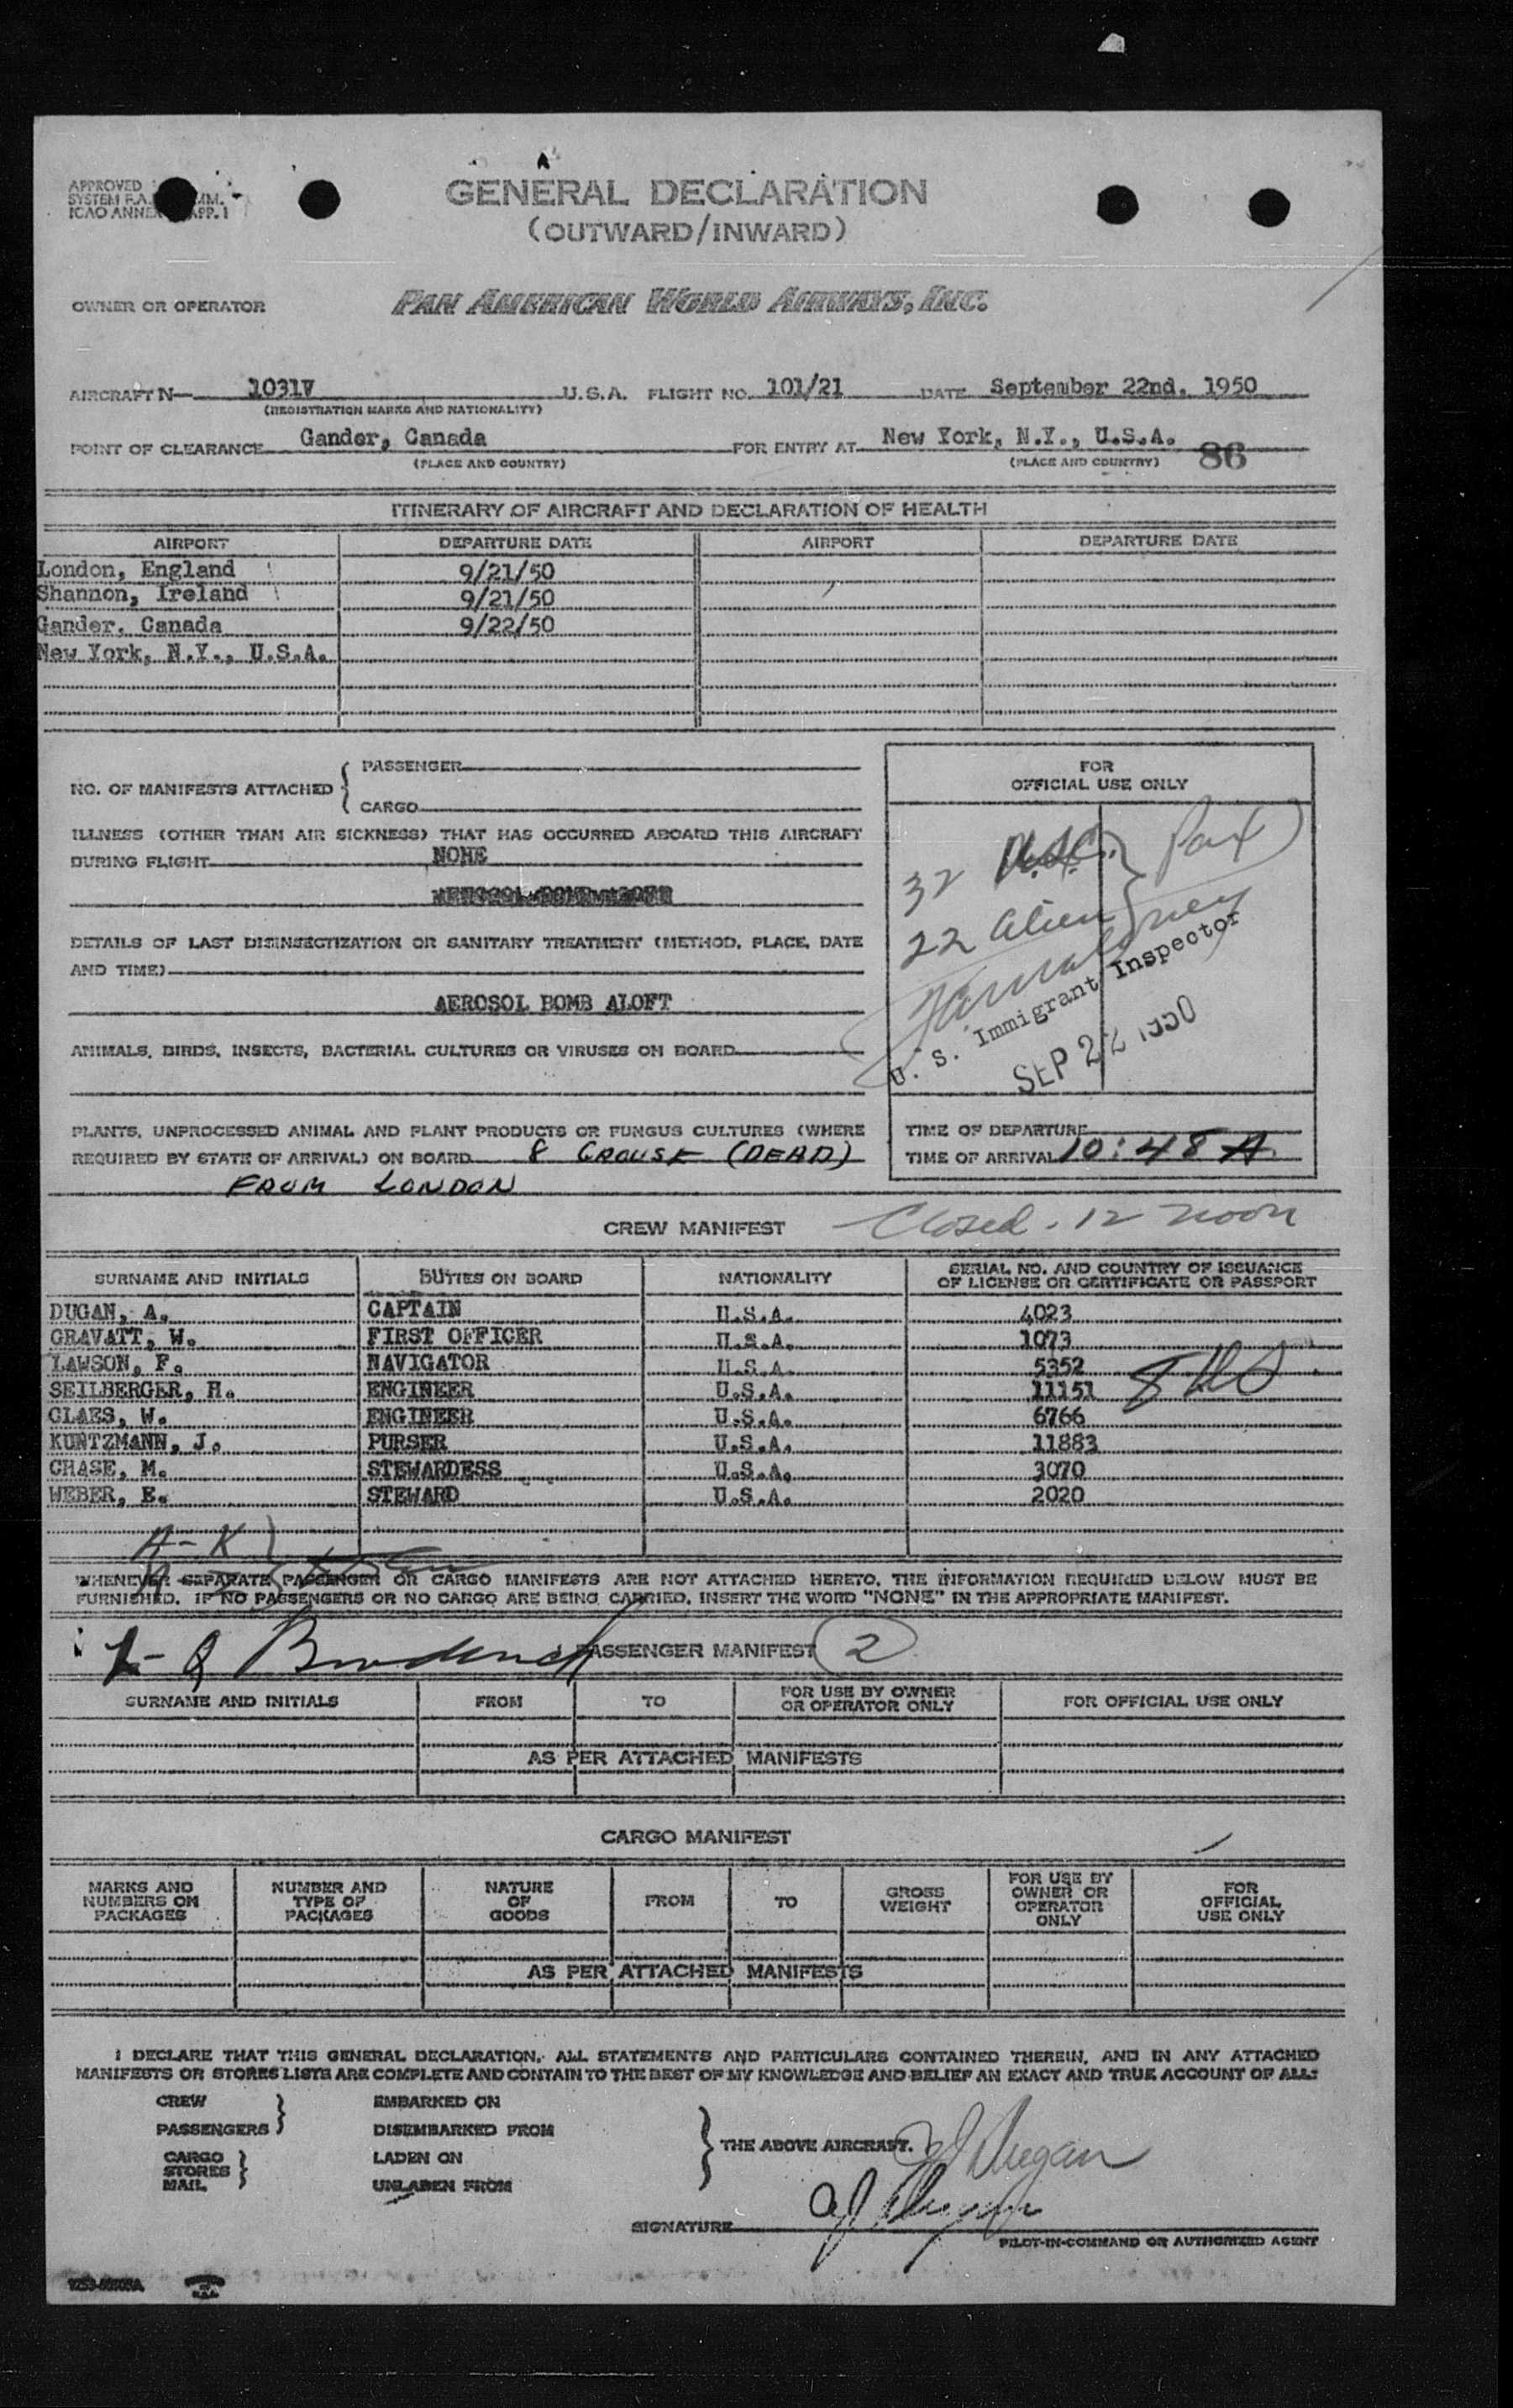 APPROVED
SYSTEM F.A. MM.
ICAO ANNEX APP. 1
GENERAL DECLARATION
(OUTWARD/INWARD)
OWNER OR OPERATOR PAN AMERICAN WORLD AIRWAYS, INC.
AIRCRAFT N— 1031V U.S.A. FLIGHT NO. 101/21 DATE September 22nd. 1950
(REGISTRATION MARKS AND NATIONALITY)
POINT OF CLEARANCE Gander, Canada FOR ENTRY AT New York, N.Y., U.S.A. 86
(PLACE AND COUNTRY) (PLACE AND COUNTRY)
ITINERARY OF AIRCRAFT AND DECLARATION OF HEALTH
AIRPORT DEPARTURE DATE AIRPORT DEPARTURE DATE
London, England 9/21/50
Shannon, Ireland 9/21/50
Gander, Canada 9/22/50
New York, N.Y., U.S.A.
NO. OF MANIFESTS ATTACHED { PASSENGER
CARGO
ILLNESS (OTHER THAN AIR SICKNESS) THAT HAS OCCURRED ABOARD THIS AIRCRAFT
DURING FLIGHT NONE
DETAILS OF LAST DISINSECTIZATION OR SANITARY TREATMENT (METHOD, PLACE, DATE
AND TIME)
AEROSOL BOMB ALOFT
ANIMALS, BIRDS, INSECTS, BACTERIAL CULTURES OR VIRUSES ON BOARD
PLANTS, UNPROCESSED ANIMAL AND PLANT PRODUCTS OR FUNGUS CULTURES (WHERE
REQUIRED BY STATE OF ARRIVAL) ON BOARD 8 GROUSE (DEAD)
FROM LONDON
FOR
OFFICIAL USE ONLY
32 U.S.C. } Pax
22 alien
U. S. Immigrant Inspector
SEP 22 1950
TIME OF DEPARTURE
TIME OF ARRIVAL 10:48 A
CREW MANIFEST Closed. 12 noon
SURNAME AND INITIALS DUTIES ON BOARD NATIONALITY SERIAL NO. AND COUNTRY OF ISSUANCE
OF LICENSE OR CERTIFICATE OR PASSPORT
DUGAN, A. CAPTAIN U.S.A. 4023
GRAVATT, W. FIRST OFFICER U.S.A. 1073
LAWSON, F. NAVIGATOR U.S.A. 5352
SEILBERGER, H. ENGINEER U.S.A. 11151
CLAES, W. ENGINEER U.S.A. 6766
KUNTZMANN, J. PURSER U.S.A. 11883
CHASE, M. STEWARDESS U.S.A. 3070
WEBER, E. STEWARD U.S.A. 2020
A-K
WHENEVER SEPARATE PASSENGER OR CARGO MANIFESTS ARE NOT ATTACHED HERETO, THE INFORMATION REQUIRED BELOW MUST BE
FURNISHED. IF NO PASSENGERS OR NO CARGO ARE BEING CARRIED, INSERT THE WORD "NONE" IN THE APPROPRIATE MANIFEST.
PASSENGER MANIFEST 2
SURNAME AND INITIALS FROM TO FOR USE BY OWNER
OR OPERATOR ONLY FOR OFFICIAL USE ONLY
AS PER ATTACHED MANIFESTS
CARGO MANIFEST
MARKS AND
NUMBERS ON
PACKAGES NUMBER AND
TYPE OF
PACKAGES NATURE
OF
GOODS FROM TO GROSS
WEIGHT FOR USE BY
OWNER OR
OPERATOR
ONLY FOR
OFFICIAL
USE ONLY
AS PER ATTACHED MANIFESTS
I DECLARE THAT THIS GENERAL DECLARATION, ALL STATEMENTS AND PARTICULARS CONTAINED THEREIN, AND IN ANY ATTACHED
MANIFESTS OR STORES LISTS ARE COMPLETE AND CONTAIN TO THE BEST OF MY KNOWLEDGE AND BELIEF AN EXACT AND TRUE ACCOUNT OF ALL:
CREW } EMBARKED ON
PASSENGERS DISEMBARKED FROM
CARGO } LADEN ON
STORES
MAIL UNLADEN FROM
} THE ABOVE AIRCRAFT. AJ Dugan
SIGNATURE AJ Dugan
PILOT-IN-COMMAND OR AUTHORIZED AGENT